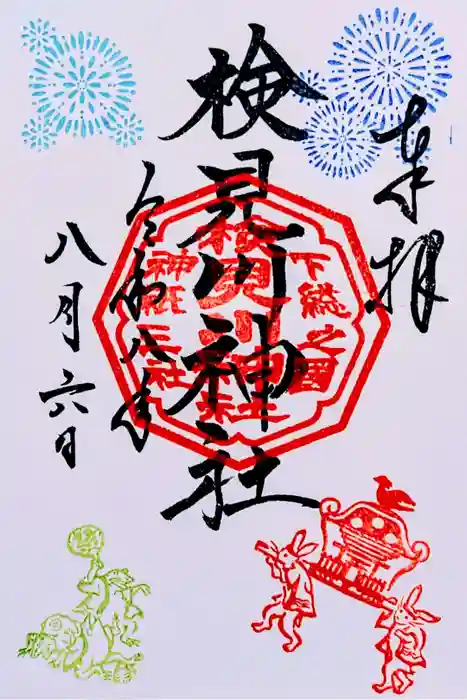 奉拝
検見川神社
令和八年
八月六日
下總之國
検見川神社
神祇三社